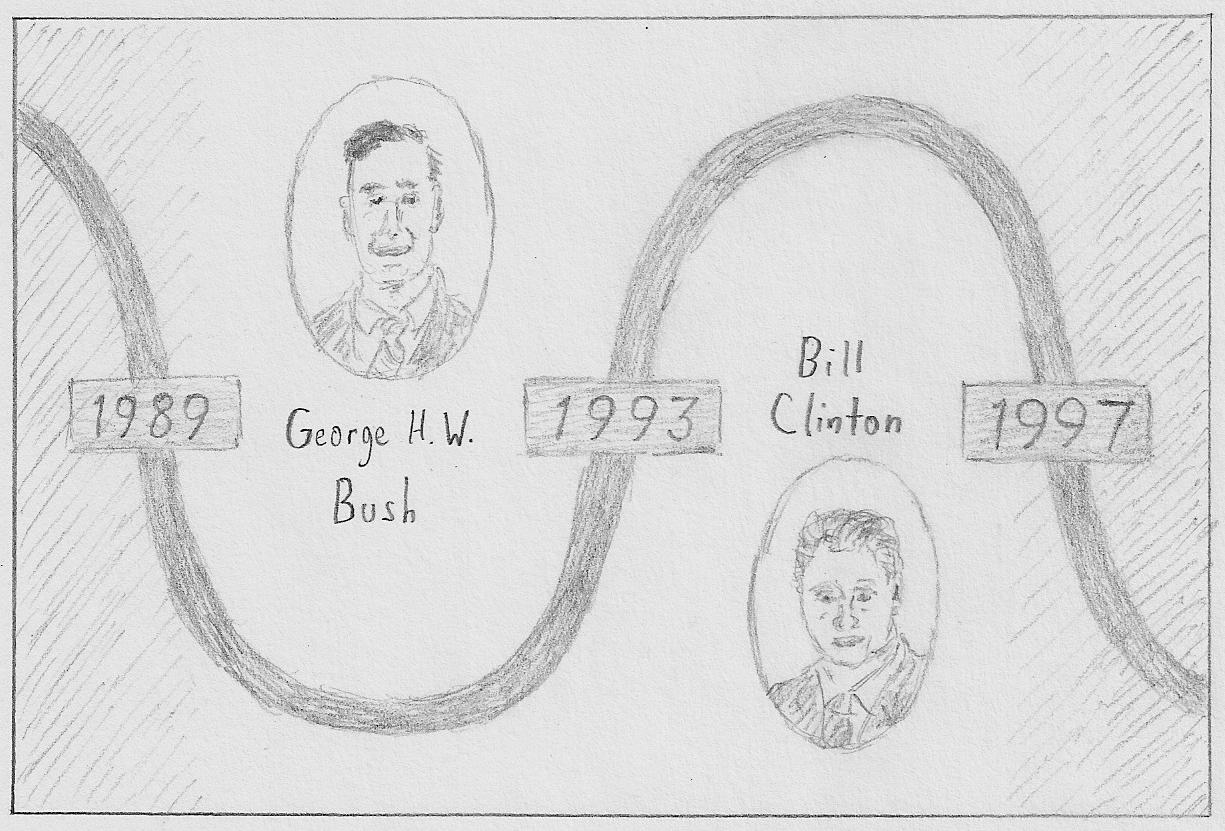 1989
George H. W.
Bush
1993
Bill
Clinton
1997